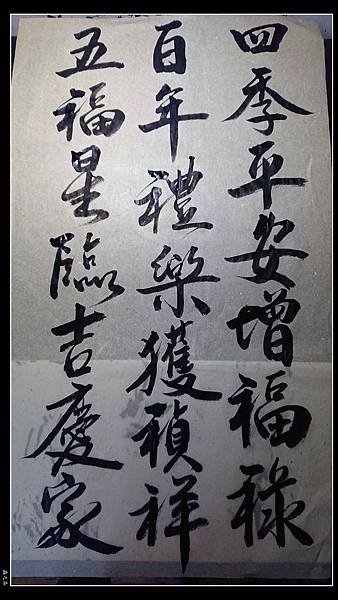 四季平安增福祿
百年禮樂獲禎祥
五福星臨吉慶家